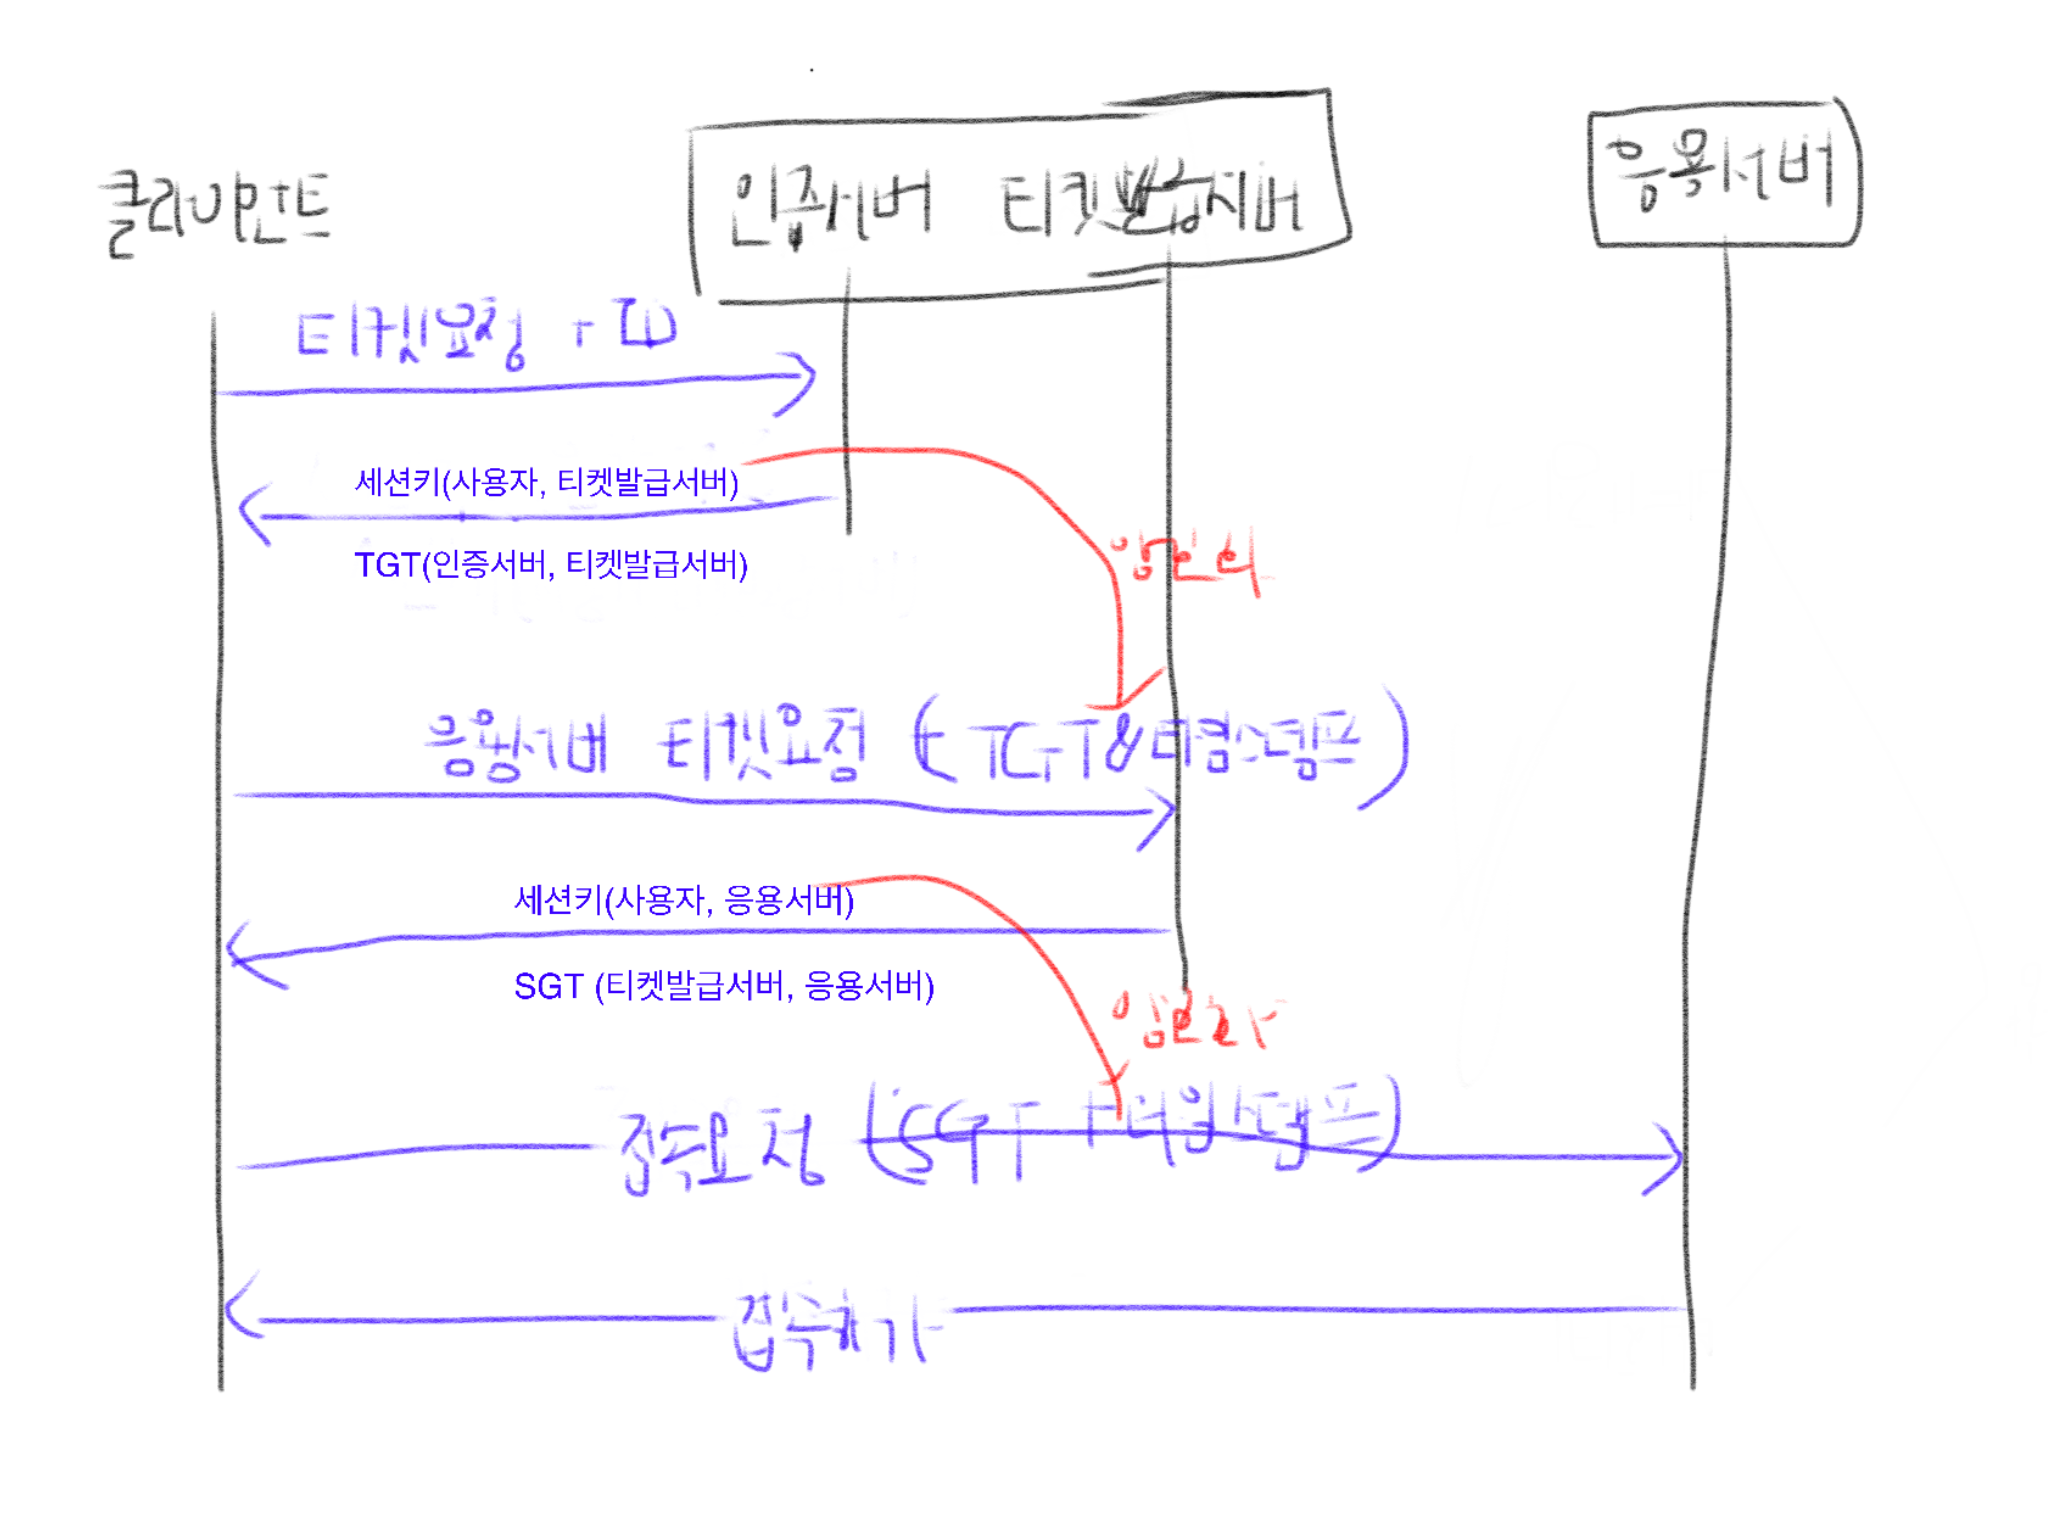 클라이언트
인증서버 티켓발급서버
응용서버
티켓요청 + ID
세션키(사용자, 티켓발급서버)
TGT(인증서버, 티켓발급서버)
암호화
응용서버 티켓요청 (+ TGT & 타임스탬프)
세션키(사용자, 응용서버)
SGT (티켓발급서버, 응용서버)
암호화
접속요청 (SGT + 타임스탬프)
접속허가